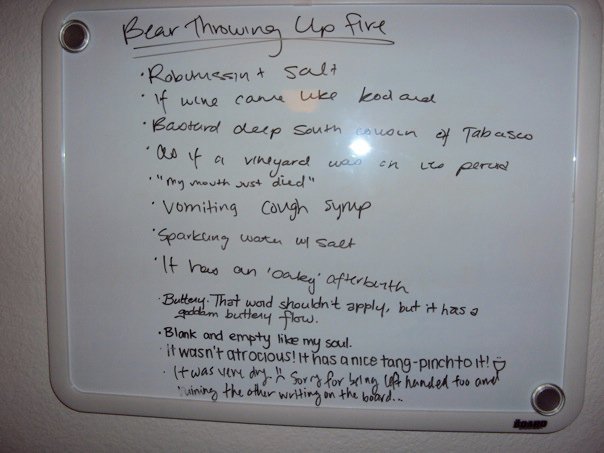 Bear Throwing Up Fire
· Robitussin + Salt
· If wine came like
· Bastard deep south cousin of Tabasco
· As if a vineyard was on its period
· "my mouth just died"
· Vomiting cough syrup
· Sparkling water w/ salt
· It has an 'oaky' afterbirth
· Buttery. That word shouldn't apply, but it has a
goddam buttery flow.
· Blank and empty like my soul.
· it wasn't atrocious! It has a nice tang-pinch to it!
· It was very dry. Sorry for being left handed too and
ruining the other writing on the board...
BOARD